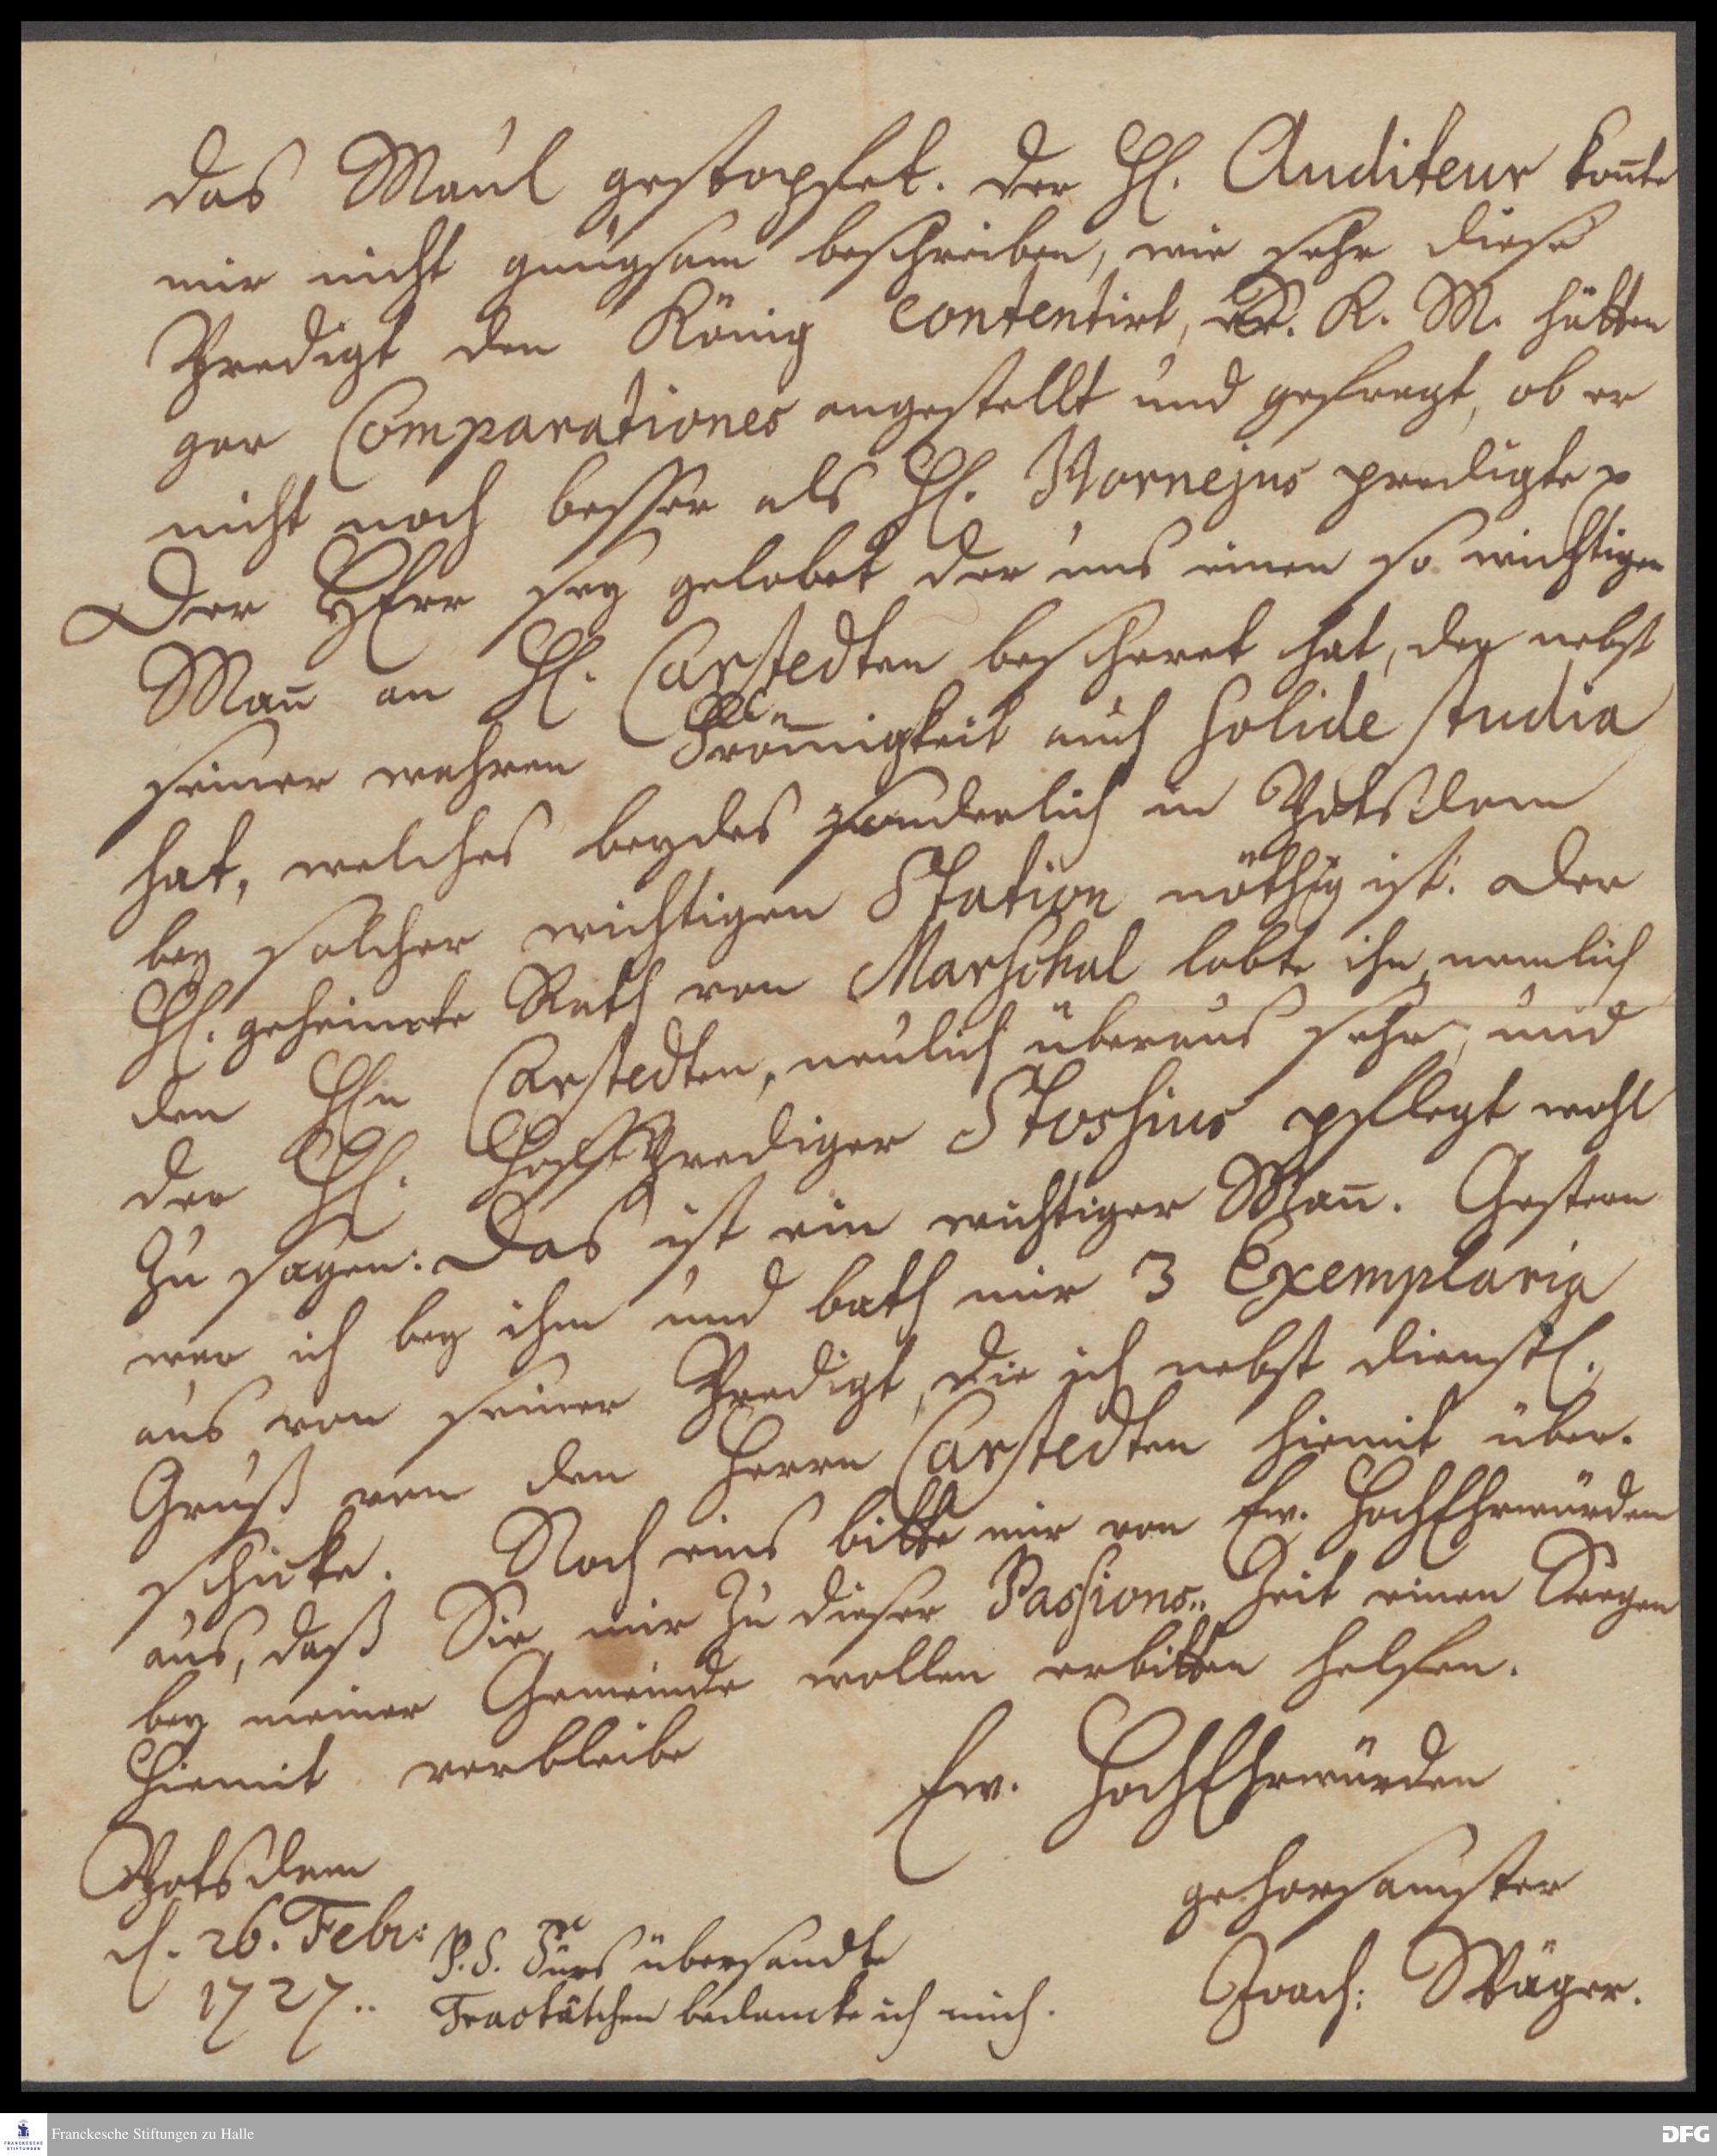 das Maul gestopfet. Der H. Auditeur kon̄te
mir nicht gnugsam beschreiben, wie sehr diese
Predigt den König contentirt, Sr. K. M. hätten
gar Comparationes angestellt und gefragt, ob er
nicht noch besser als H. Hornejus predigte
Der HErr sey gelobet der uns einen so wichtigen
Man̄ an H. Carstedten bescheret hat, der nebst
seiner wahren From̄igkeit auch solide studia
hat, welches beydes sonderlich in Potsdam
bey solcher wichtigen Station nöthig ist. Der
H. geheimte Rath von Marschal lobte ihn nemlich
den Hn Carstedten, neulich überaus sehr, und
der H. HoffPrediger Stoshius pflegt wohl
zu sagen: Das ist ein wichtiger Man̄. Gestern
war ich bey ihm und bath mir 3 Exemplaria
aus von seiner Predigt, die ich nebst dienstl.
Gruß von den Herrn Carstedten hiemit über-
schicke. Noch eins bitte mir von Ew. HochEhrwürden
aus, daß Sie mir zu dieser Passions- Zeit einen Seegen
bey meiner Gemeinde wollen erbitten helfen.
Hiemit verbleibe
Ew. HochEhrwürden
Potsdam
d. 26. Febr:
1727..
gehorsamster
Joach: Wäger.
P.S. Fürs übersandte
Tractätchen bedancke ich mich.
Franckesche Stiftungen zu Halle
FRANCKESCHE STIFTUNGEN
DFG